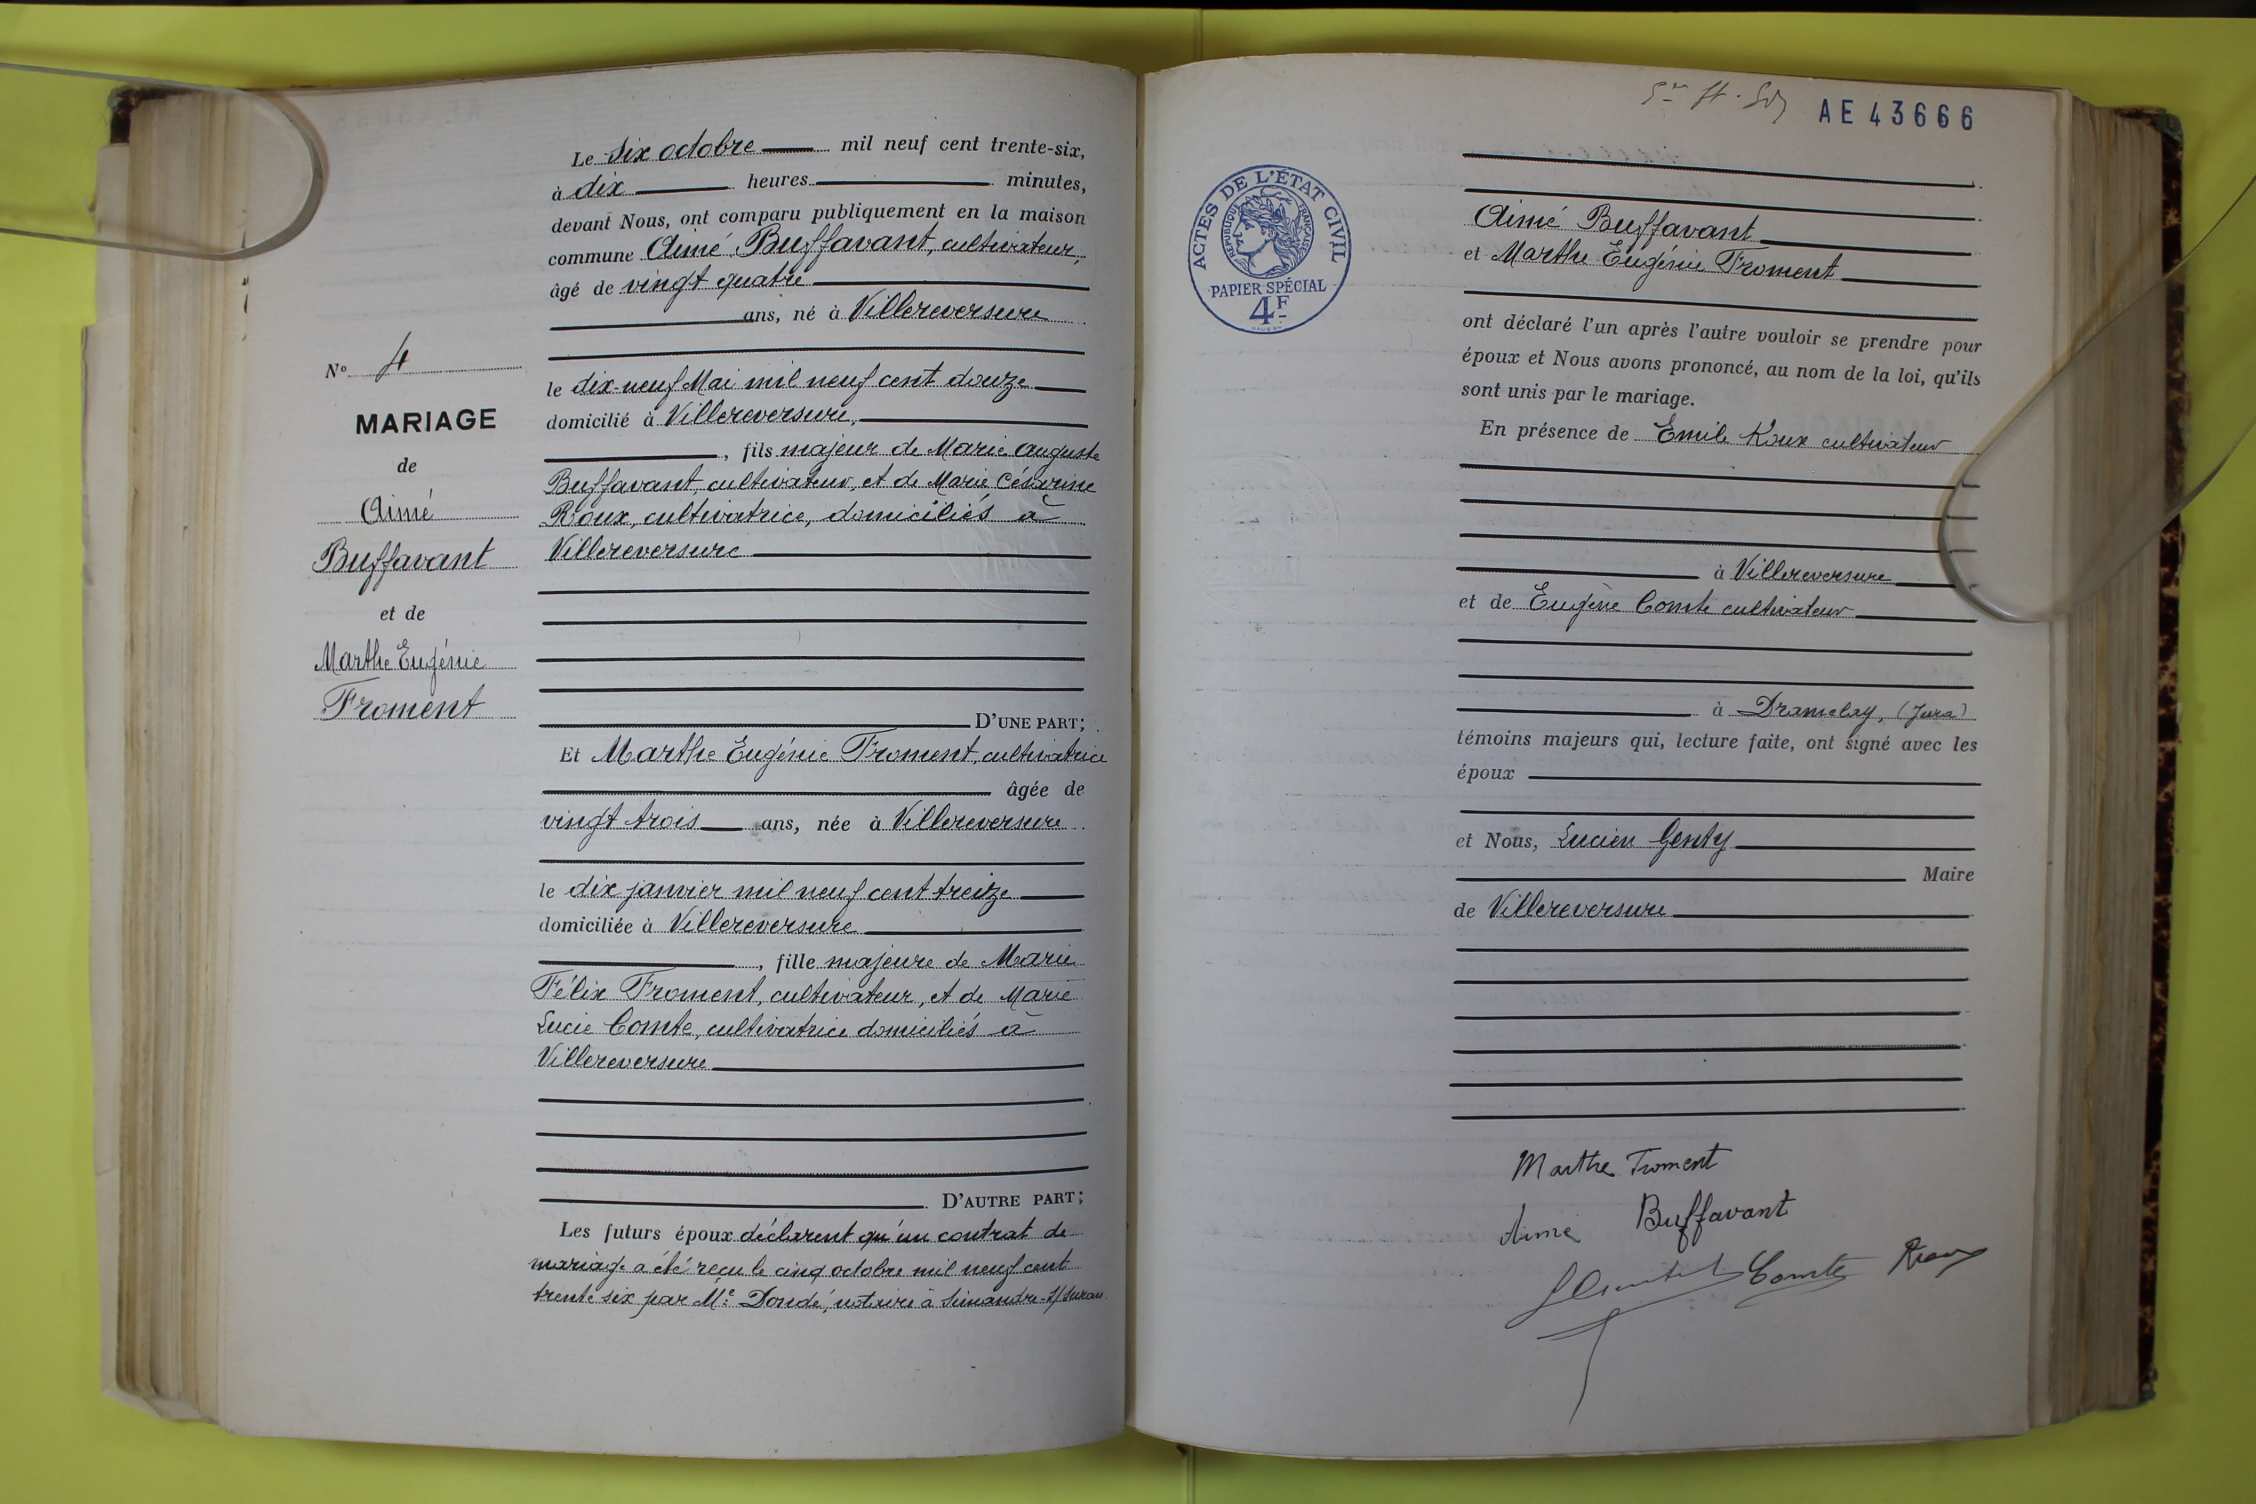 Le six octobre mil neuf cent trente-six,
à dix heures minutes,
devant Nous, ont comparu publiquement en la maison
commune Aimé Buffavant, cultivateur,
âgé de vingt quatre
ans, né à Villereversure
le dix-neuf Mai mil neuf cent douze
domicilié à Villereversure,
, fils majeur de Marie Auguste
Buffavant, cultivateur, et de Marie Césarine
Roux, cultivatrice, domiciliés à
Villereversure
D'UNE PART;
Et Marthe Eugénie Froment, cultivatrice
âgée de
vingt trois ans, née à Villereversure
le dix janvier mil neuf cent treize
domiciliée à Villereversure
, fille majeure de Marie
Félix Froment, cultivateur, et de Marie
Lucie Comte, cultivatrice domiciliés à
Villereversure
D'AUTRE PART;
Les futurs époux déclarent qu'un contrat de
mariage a été reçu le cinq octobre mil neuf cent
trente six par Me Dondé, notaire à Simandre-s/Suran
No 4
MARIAGE
de
Aimé
Buffavant
et de
Marthe Eugénie
Froment
AE 43666
ACTES DE L'ÉTAT CIVIL
RÉPUBLIQUE FRANÇAISE
PAPIER SPÉCIAL
4F
Aimé Buffavant
et Marthe Eugénie Froment
ont déclaré l'un après l'autre vouloir se prendre pour
époux et Nous avons prononcé, au nom de la loi, qu'ils
sont unis par le mariage.
En présence de Emile Roux cultivateur
à Villereversure
et de Eugène Comte cultivateur
à Dramelay, (Jura)
témoins majeurs qui, lecture faite, ont signé avec les
époux
et Nous, Lucien Genty
Maire
de Villereversure
Marthe Froment
Aimé Buffavant
Comte Roux